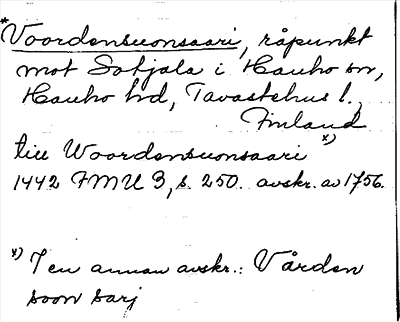 *Voordensuonsaari, råpunkt
mot Sotjala i Hauho sn,
Hauho hd, Tavastehus l.,
Finland
till Woordensuonsaari x)
1442 FMU 3, s. 250. avskr. av 1756.
x) I en annan avskr.: Vården
soon sarj